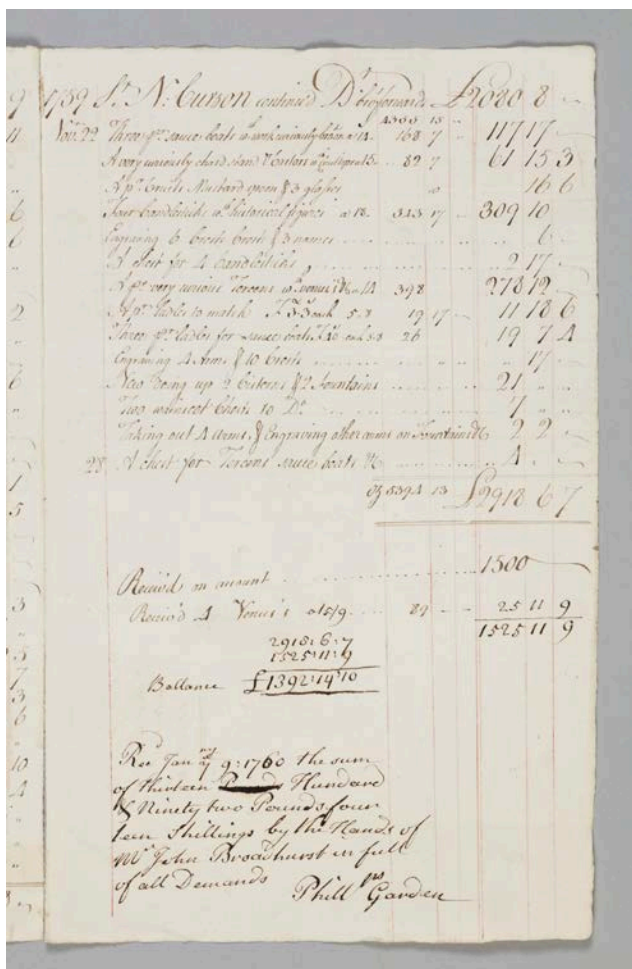 1759 Sr. N: Curson continued Dr. bro't forwards £2080 8 "
4366 15 "
Nov: 22 Three pr. sauce boats wth. work 14. 168 7 " 117 17 "
A very curiously chas'd stand 15. 82 7 61 15 3
A pr. Cruits Mustard spoon & 3 glasses 16 6
Four Candlesticks wth. historical figures a 18. 343 17 " 309 10
Engraving 6 Crests & 3 names 6 "
A chest for 4 Candlesticks 2 17 "
A pr. very curious Toreens wth. venus's &c a 14 398 278 12 "
A pr. ladles to match 5.8 19 17 " 11 18 6
Three pr. ladles for sauce boats each 5.8 26 19 7 4
Engraving 4 Arms & 10 Crests " 17 "
New doing up 2 Cisterns & 2 Fountains 21 " "
Two wainscot Chests to Do. 7 " "
Taking out 4 arms, & Engraving other arms on Fountains &c 2 2 "
28 A chest for Toreens sauce boats &c 4 " "
oz 5394 13 £2918 6 7
Receiv'd on account 1500
Receiv'd 4 Venus's a 5/9 89 " 25 11 9
1525 11 9
2918:6:7
1525:11:9
Ballance £1392:14:10
Recd. Jany. 9: 1760 the sum
of thirteen Hundard
& Ninety two Pounds four
teen Shillings by the Hands of
Mr. John Broadhurst in full
of all Demands
Phillips Garden
9
11
"
6
6
"
2
"
6
"
1
5
3
"
3
7
3
6
"
10
4
"
"
"